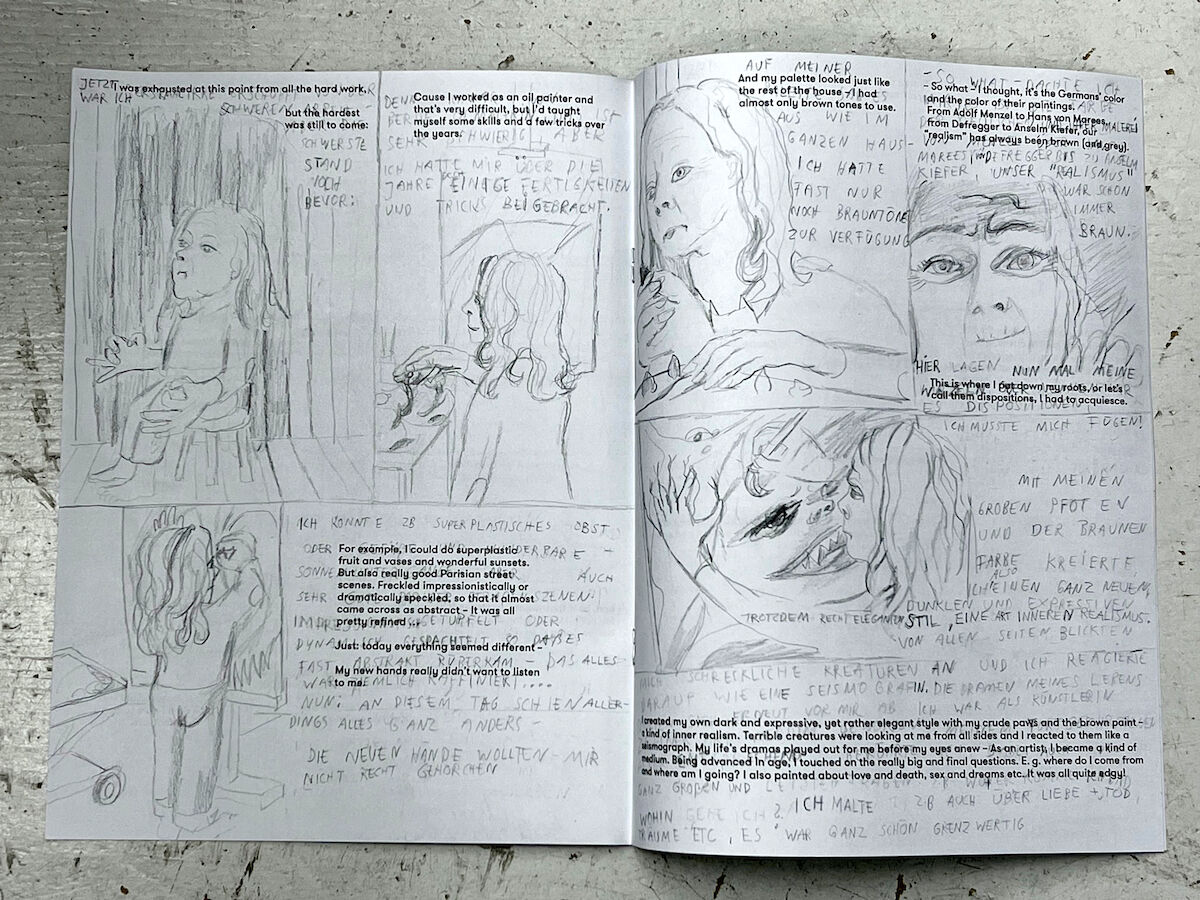 JETZT
WAR ICH
I was exhausted at this point from all the hard work,
but the hardest
was still to come:
SCHWERSTE
STAND
NOCH
BEVOR:
Cause I worked as an oil painter and
that's very difficult, but I'd taught
myself some skills and a few tricks over
the years.
SEHR SCHWIERIG ABER
ICH HATTE MIR ÜBER DIE
JAHRE EINIGE FERTIGKEITEN
UND TRICKS BEIGEBRACHT.
ICH KONNTE ZB SUPERPLASTISCHES OBST
ODER
For example, I could do superplastic
fruit and vases and wonderful sunsets.
But also really good Parisian street
scenes. Freckled impressionistically or
dramatically speckled, so that it almost
came across as abstract – It was all
pretty refined ...
Just: today everything seemed different –
My new hands really didn't want to listen
to me.
AUCH
SEHR
FAST ABSTRAKT RÜBERKAM – DAS ALLES
NUN: AN DIESEM TAG SCHIEN ALLER-
DINGS ALLES GANZ ANDERS –
DIE NEUEN HÄNDE WOLLTEN MIR
NICHT RECHT GEHORCHEN
AUF MEINER
And my palette looked just like
the rest of the house – I had
almost only brown tones to use.
AUS WIE IM
GANZEN HAUS–
ICH HATTE
FAST NUR
NOCH BRAUNTÖNE
ZUR VERFÜGUNG
– SO WHAT – DACHTE ICH
– So what – I thought, it's the Germans' color
and the color of their paintings.
From Adolf Menzel to Hans von Marees,
from Defregger to Anselm Kiefer, our
"realism" has always been brown (and grey).
MAREES, DEFREGGER BIS ZU ANSELM
KIEFER, UNSER "REALISMUS"
WAR SCHON
IMMER
BRAUN.
HIER LAGEN NUN MAL MEINE
This is where I put down my roots, or let's
call them dispositions, I had to acquiesce.
ES DISPOSITIONEN,
ICH MUSSTE MICH FÜGEN!
MIT MEINEN
GROBEN PFOTEN
UND DER BRAUNEN
FARBE KREIERTE
ICH ALSO EINEN GANZ NEUEN,
DUNKLEN UND EXPRESSIVEN
TROTZDEM RECHT ELEGANTEN STIL, EINE ART INNEREN REALISMUS.
VON ALLEN SEITEN BLICKTEN
MICH SCHRECKLICHE KREATUREN AN UND ICH REAGIERTE
DARAUF WIE EINE SEISMOGRAFIN. DIE DRAMEN MEINES LEBENS
ERNEUT VOR MIR AB ICH WAR ALS KÜNSTLERIN
I created my own dark and expressive, yet rather elegant style with my crude paws and the brown paint –
a kind of inner realism. Terrible creatures were looking at me from all sides and I reacted to them like a
seismograph. My life's dramas played out for me before my eyes anew – As an artist, I became a kind of
medium. Being advanced in age, I touched on the really big and final questions. E. g. where do I come from
and where am I going? I also painted about love and death, sex and dreams etc. It was all quite edgy!
GANZ GROßEN UND
WOHIN GEHE ICH? ICH MALTE ZB AUCH ÜBER LIEBE + TOD,
TRÄUME ETC, ES WAR GANZ SCHÖN GRENZWERTIG